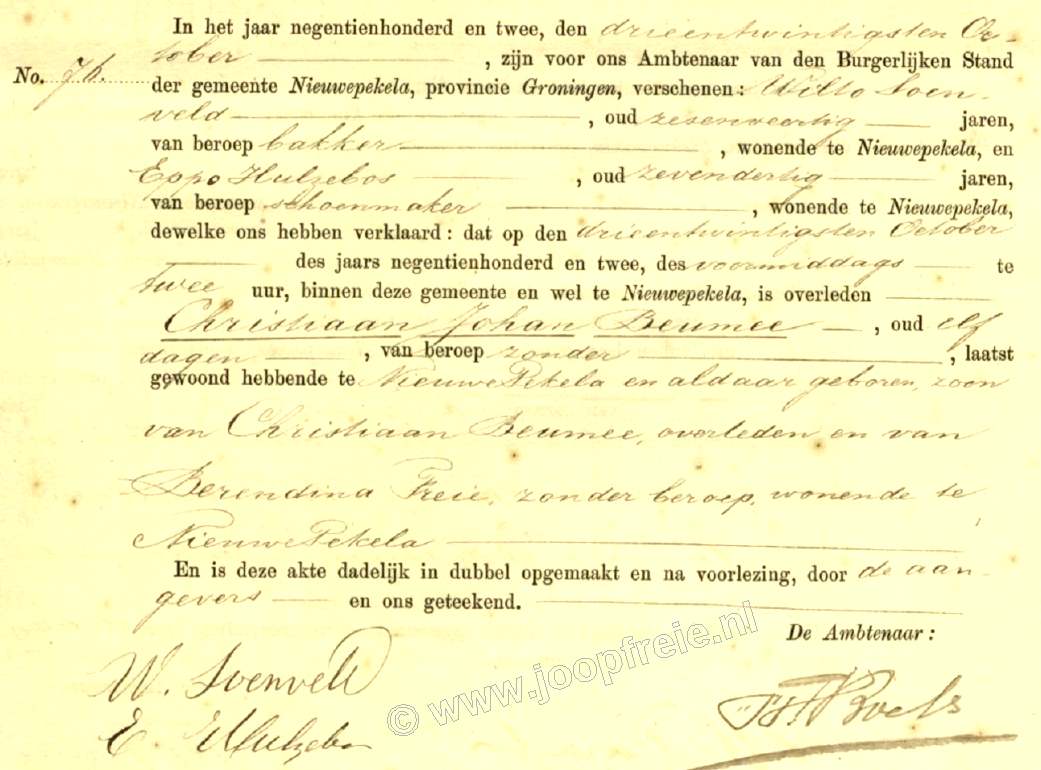 In het jaar negentienhonderd en twee, den drieentwintigsten Oc-
No. 76. tober , zijn voor ons Ambtenaar van den Burgerlijken Stand
der gemeente Nieuwepekela, provincie Groningen, verschenen: Wilto Soen-
veld , oud zesenveertig jaren,
van beroep bakker , wonende te Nieuwepekela, en
Eppo Hulzebos , oud zevendertig jaren,
van beroep schoenmaker , wonende te Nieuwepekela,
dewelke ons hebben verklaard: dat op den drieentwintigsten October
des jaars negentienhonderd en twee, des voormiddags te
twee uur, binnen deze gemeente en wel te Nieuwepekela, is overleden
Christiaan Johan Beumee , oud elf
dagen , van beroep zonder , laatst
gewoond hebbende te Nieuwe Pekela en aldaar geboren, zoon
van Christiaan Beumee, overleden en van
Berendina Freie, zonder beroep, wonende te
Nieuwe Pekela
En is deze akte dadelijk in dubbel opgemaakt en na voorlezing, door de aan-
gevers en ons geteekend.
De Ambtenaar:
W. Soenveld
E. Hulzebos
© www.joopfreie.nl